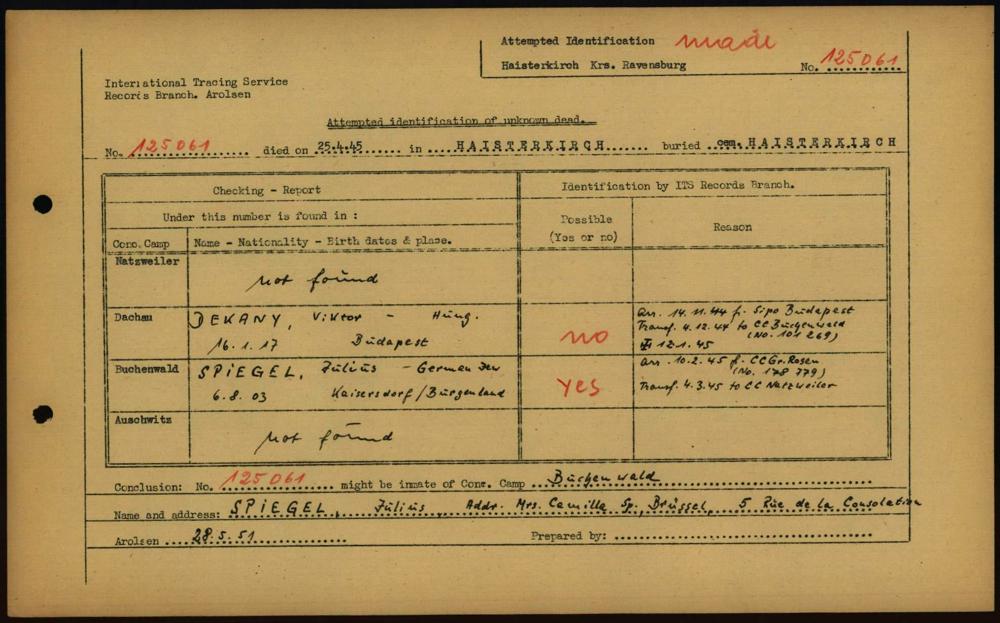 Attempted Identification made
Haisterkirch Krs. Ravensburg No. 125061
International Tracing Service
Records Branch. Arolsen
Attempted identification of unknown dead.
No. 125061 died on 25.4.45 in HAISTERKIRCH buried cem. HAISTERKIRCH
Checking - Report Identification by ITS Records Branch.
Under this number is found in :
Conc. Camp Name - Nationality - Birth dates & place. Possible (Yes or no) Reason
Natzweiler not found
Dachau DEKANY, Viktor - Hung. no Arr. 14.11.44 fr. Sipo Budapest
16.1.17 Budapest Transf. 4.12.44 to CC Buchenwald
(No. 101 269)
12.1.45
Buchenwald SPIEGEL, Julius - German Jew yes arr. 10.2.45 f. CC Gr. Rosen
(No. 178 779)
6.8.03 Kaisersdorf/Burgenland Transf. 4.3.45 to CC Natzweiler
Auschwitz not found
Conclusion: No. 125061 might be inmate of Conc. Camp Buchenwald
Name and address: SPIEGEL, Julius Addr. Mrs. Camilla Sp., Brüssel, 5 Rue de la Consolation
Arolsen 28.5.51 Prepared by: